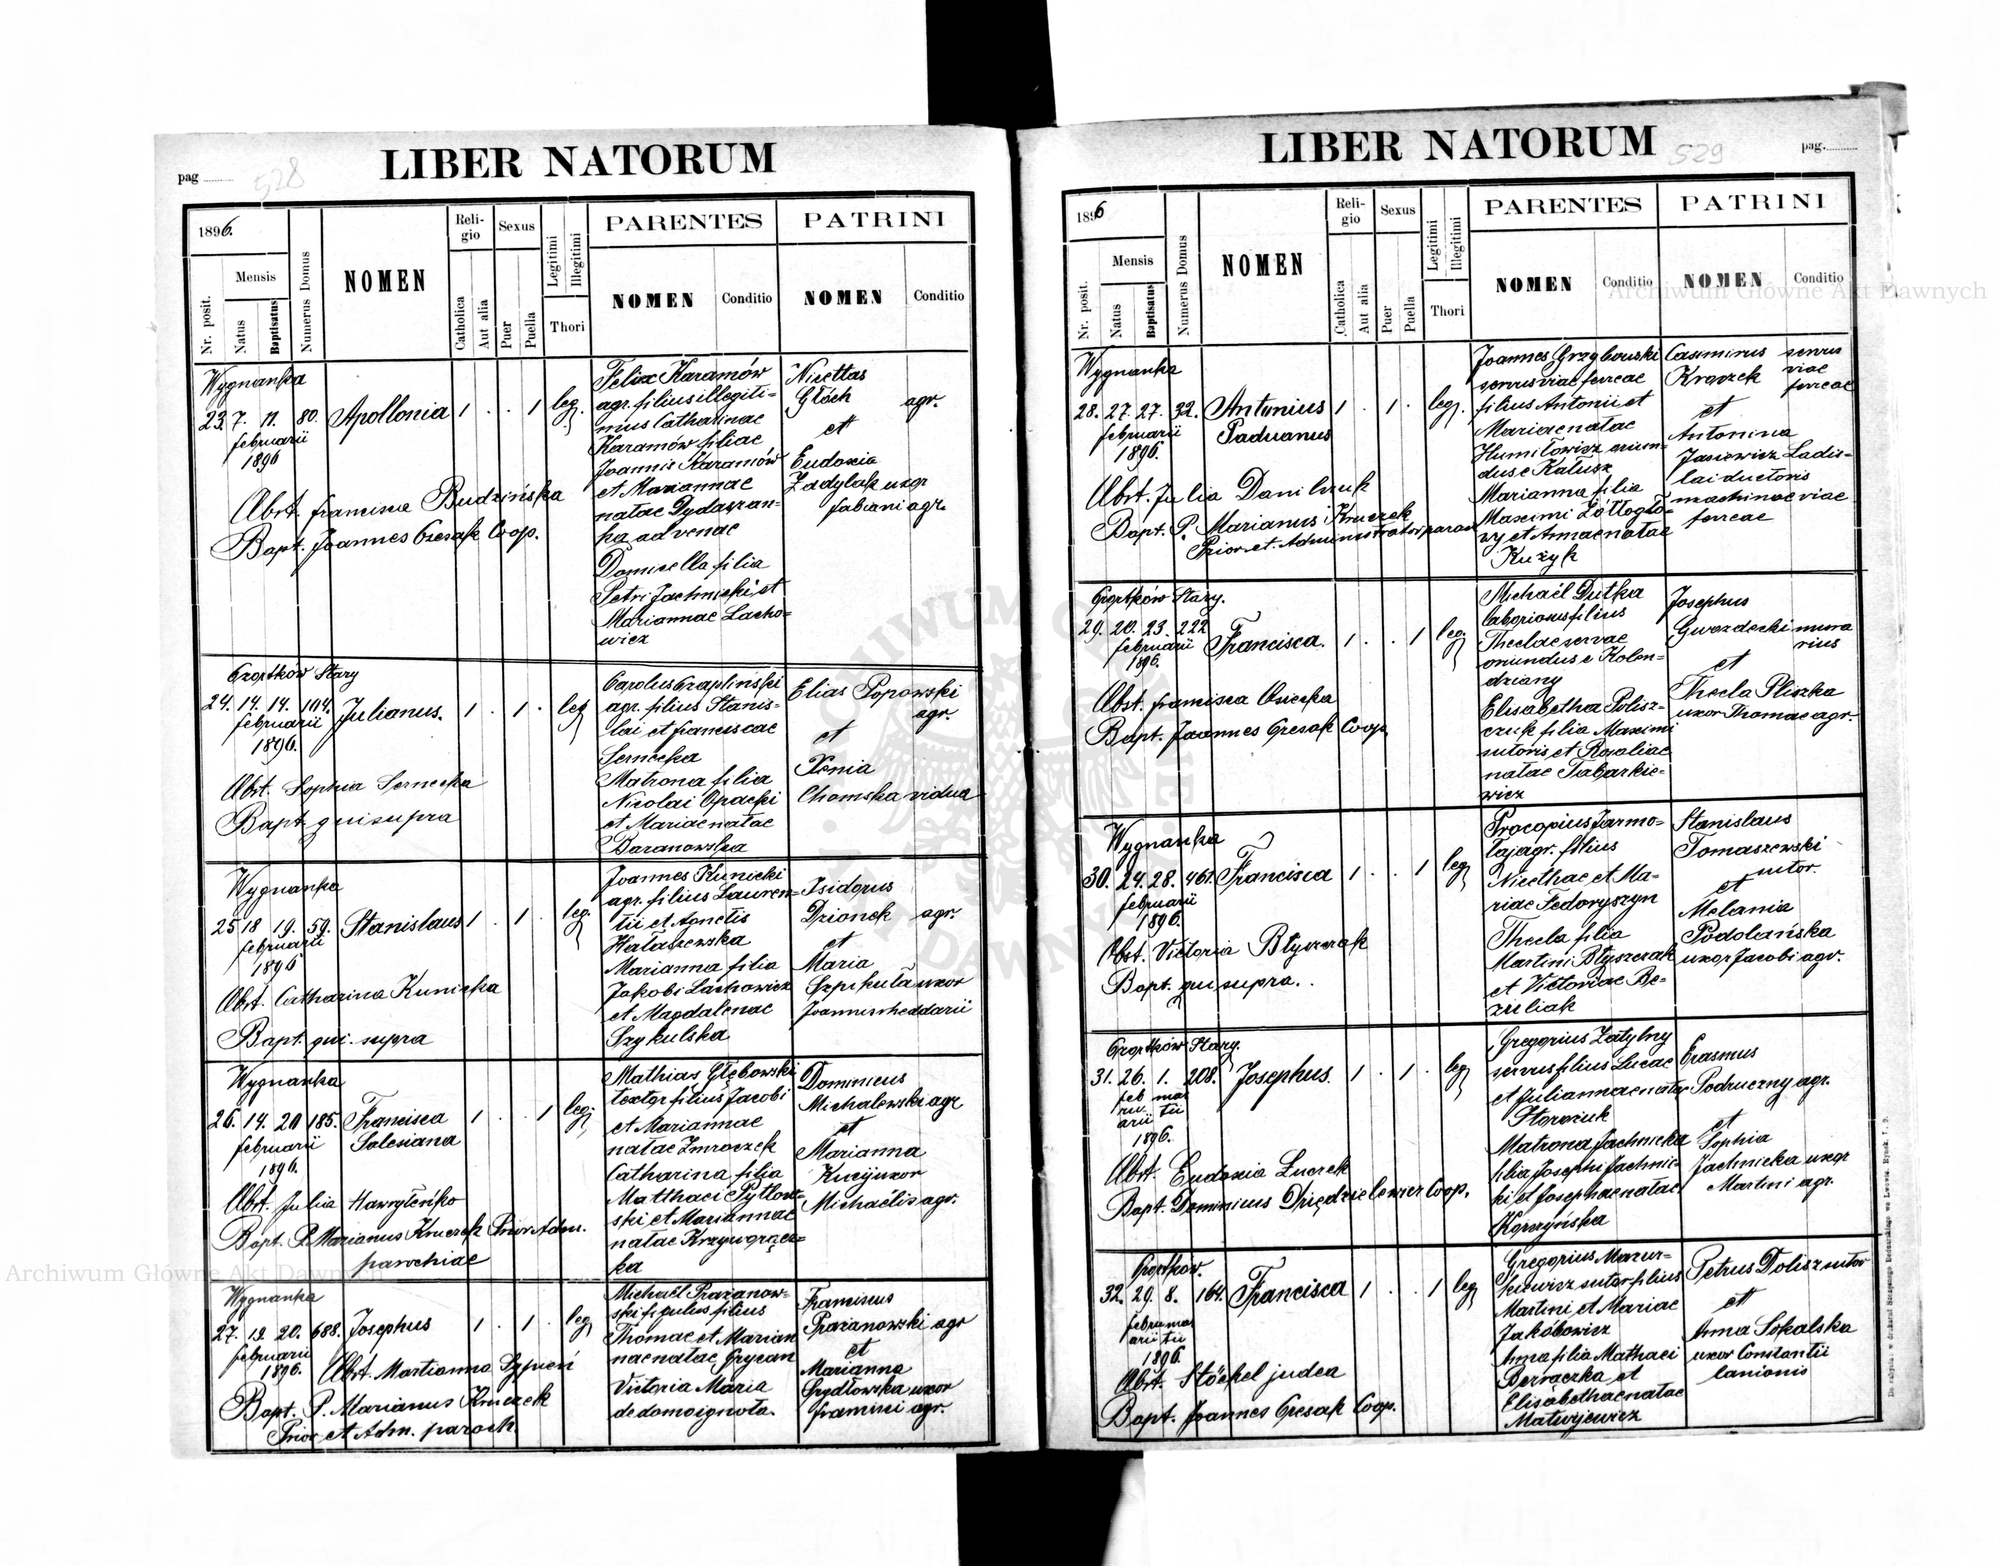 LIBER NATORUM
pag
528
1896.
Nr. posit.
Mensis
Natus
Baptisatus
Numerus Domus
NOMEN
Religio
Catholica
Aut alia
Sexus
Puer
Puella
Legitimi
Illegitimi
Thori
PARENTES
NOMEN
Conditio
PATRINI
NOMEN
Conditio
Wygnanka
23. 7. 11. 80. Apollonia 1 . . 1 leg.
februarii
1896
Obst. Francisca Budzińska
Bapt. Joannes Coop.
Felix Karamów
agr. filius illegiti-
mus Catharinae
Karamów filiae
Joannis Karamów
et Mariannae
natae
ka advenae
Domicella filia
Petri Jachnicki et
Mariannae Lacho-
wicz
Nicettas
Głóch agr.
et
Eudoxia
Zadylak uxor
Fabiani agr.
Czortków Stary
24. 14. 14. 104. Julianus. 1 . 1 . leg
februarii
1896.
Obst. Sophia Sernecka
Bapt. qui supra
Carolus Czaplinski
agr. filius Stanis-
lai et Franciscae
Sernecka
Matrona filia
Nicolai Opacki
et Mariae natae
Baranowska
Elias Popowski
agr.
et
Xenia
Chomska vidua
Wygnanka
25 18 19. 59. Stanislaus 1 . 1 . leg.
februarii
1896
Obst. Catharina Kunicka
Bapt. qui supra
Joannes Kunicki
agr. filius Lauren-
tii et Agnetis
Hałaszewska
Marianna filia
Jakobi Lachowicz
et Magdalenae
Szykulska
Isidorus
Dzionek agr.
et
Maria
Szpikuła uxor
Joannis
Wygnanka
26. 14. 20 185. Francisca 1 . . 1 leg.
Salesiana
februarii
1896.
Obst. Julia Hawryłeńko
Bapt. P. Marianus Kruczek Prior Adm.
parochiae
Mathias Głębowski
textor filius Jacobi
et Mariannae
natae Zmroczek
Catharina filia
Matthaei Pytlow-
ski et Mariannae
natae Krzyworącz-
ka
Dominicus
Michalewski agr
et
Marianna
Kucij uxor
Michaëlis agr.
Wygnanka
27. 19. 20. 688. Josephus 1 . 1 . leg
februarii
1896. Obst. Martianna Sypień
Bapt. P. Marianus Kruczek
Prior et Adm. paroch.
Michaël Prazanow-
ski figulus filius
Thomae et Marian
nae natae Grycan
Victoria Maria
de domo ignota.
Franciscus
Prazanowski agr
et
Marianna
Szydłowska uxor
Francisci agr.
LIBER NATORUM
529
pag.
1896
Nr. posit.
Mensis
Natus
Baptisatus
Numerus Domus
NOMEN
Religio
Catholica
Aut alia
Sexus
Puer
Puella
Legitimi
Illegitimi
Thori
PARENTES
NOMEN
Conditio
PATRINI
NOMEN
Conditio
Wygnanka
28. 27. 27. 32. Antonius 1 . 1 . leg.
Paduanus
februarii
1896.
Obst. Julia Danilczuk
Bapt. P. Marianus Kruczek
Prior et Administrator paroch
Joannes Grzybowski
servus viae ferreae
filius Antonii et
Mariae natae
Humiłowicz oriun-
dus e Kałusz
Marianna filia
Maximi Zółtogło-
wy et Annae natae
Kużyk
Casimirus servus
Krączek viae
ferreae
et
Antonina
Jasiewicz Ladis-
lai ductoris
machinae viae
ferreae
Czortków Stary.
29. 20. 23. 222 Francisca. 1 . . 1 leg.
februarii
1896.
Obst. Francisca Osiecka
Bapt. Joannes Coop.
Michaël Dutka
laboriosus filius
Theclae servae
oriundus e Kolen-
dziany
Elisabetha Polisz-
czuk filia Maximi
sutoris et Rosaliae
natae Tabarkie-
wicz
Josephus
Gwozdecki mura
rius
et
Thecla Pliszka
uxor Thomae agr.
Wygnanka
30. 24. 28. 461. Francisca 1 . . 1 leg
februarii
1896.
Obst. Victoria Błyszczak
Bapt. qui supra.
Procopius Jarmo-
łaj agr. filius
Nicethae et Ma-
riae Fedoryszyn
Thecla filia
Martini Błyszczak
et Victoriae Be-
zuliak
Stanislaus
Tomaszewski
sutor.
et
Melania
Podolańska
uxor Jacobi agr.
Czortków Stary.
31. 26. 1. 208. Josephus. 1 . 1 . leg
feb mar
ru tii
arii
1896.
Obst. Eudoxia Luczek
Bapt. Dominicus Dziędzielewicz Coop.
Gregorius Zatylny
servus filius Lucae
et Juliannae natae
Storozuk
Matrona Jachnicka
filia Josephi Jachnic-
ki et Josephae natae
Korzyńska
Erasmus
Podruczny agr.
et
Sophia
Jachnicka uxor
Martini agr.
Czortków.
32. 29. 8. 164. Francisca 1 . . 1 leg
febru mar
arii tii
1896.
Obst. Stöckel judea
Bapt. Joannes Coop.
Gregorius Mazur-
kiewicz sutor filius
Martini et Mariae
Jakóbowicz
Anna filia Mathaei
Bezraczka et
Elisabethae natae
Matwijewicz
Petrus Dolisz sutor
et
Anna Sokalska
uxor Constantii
lanionis
Archiwum Główne Akt Dawnych
Archiwum Główne Akt Dawnych